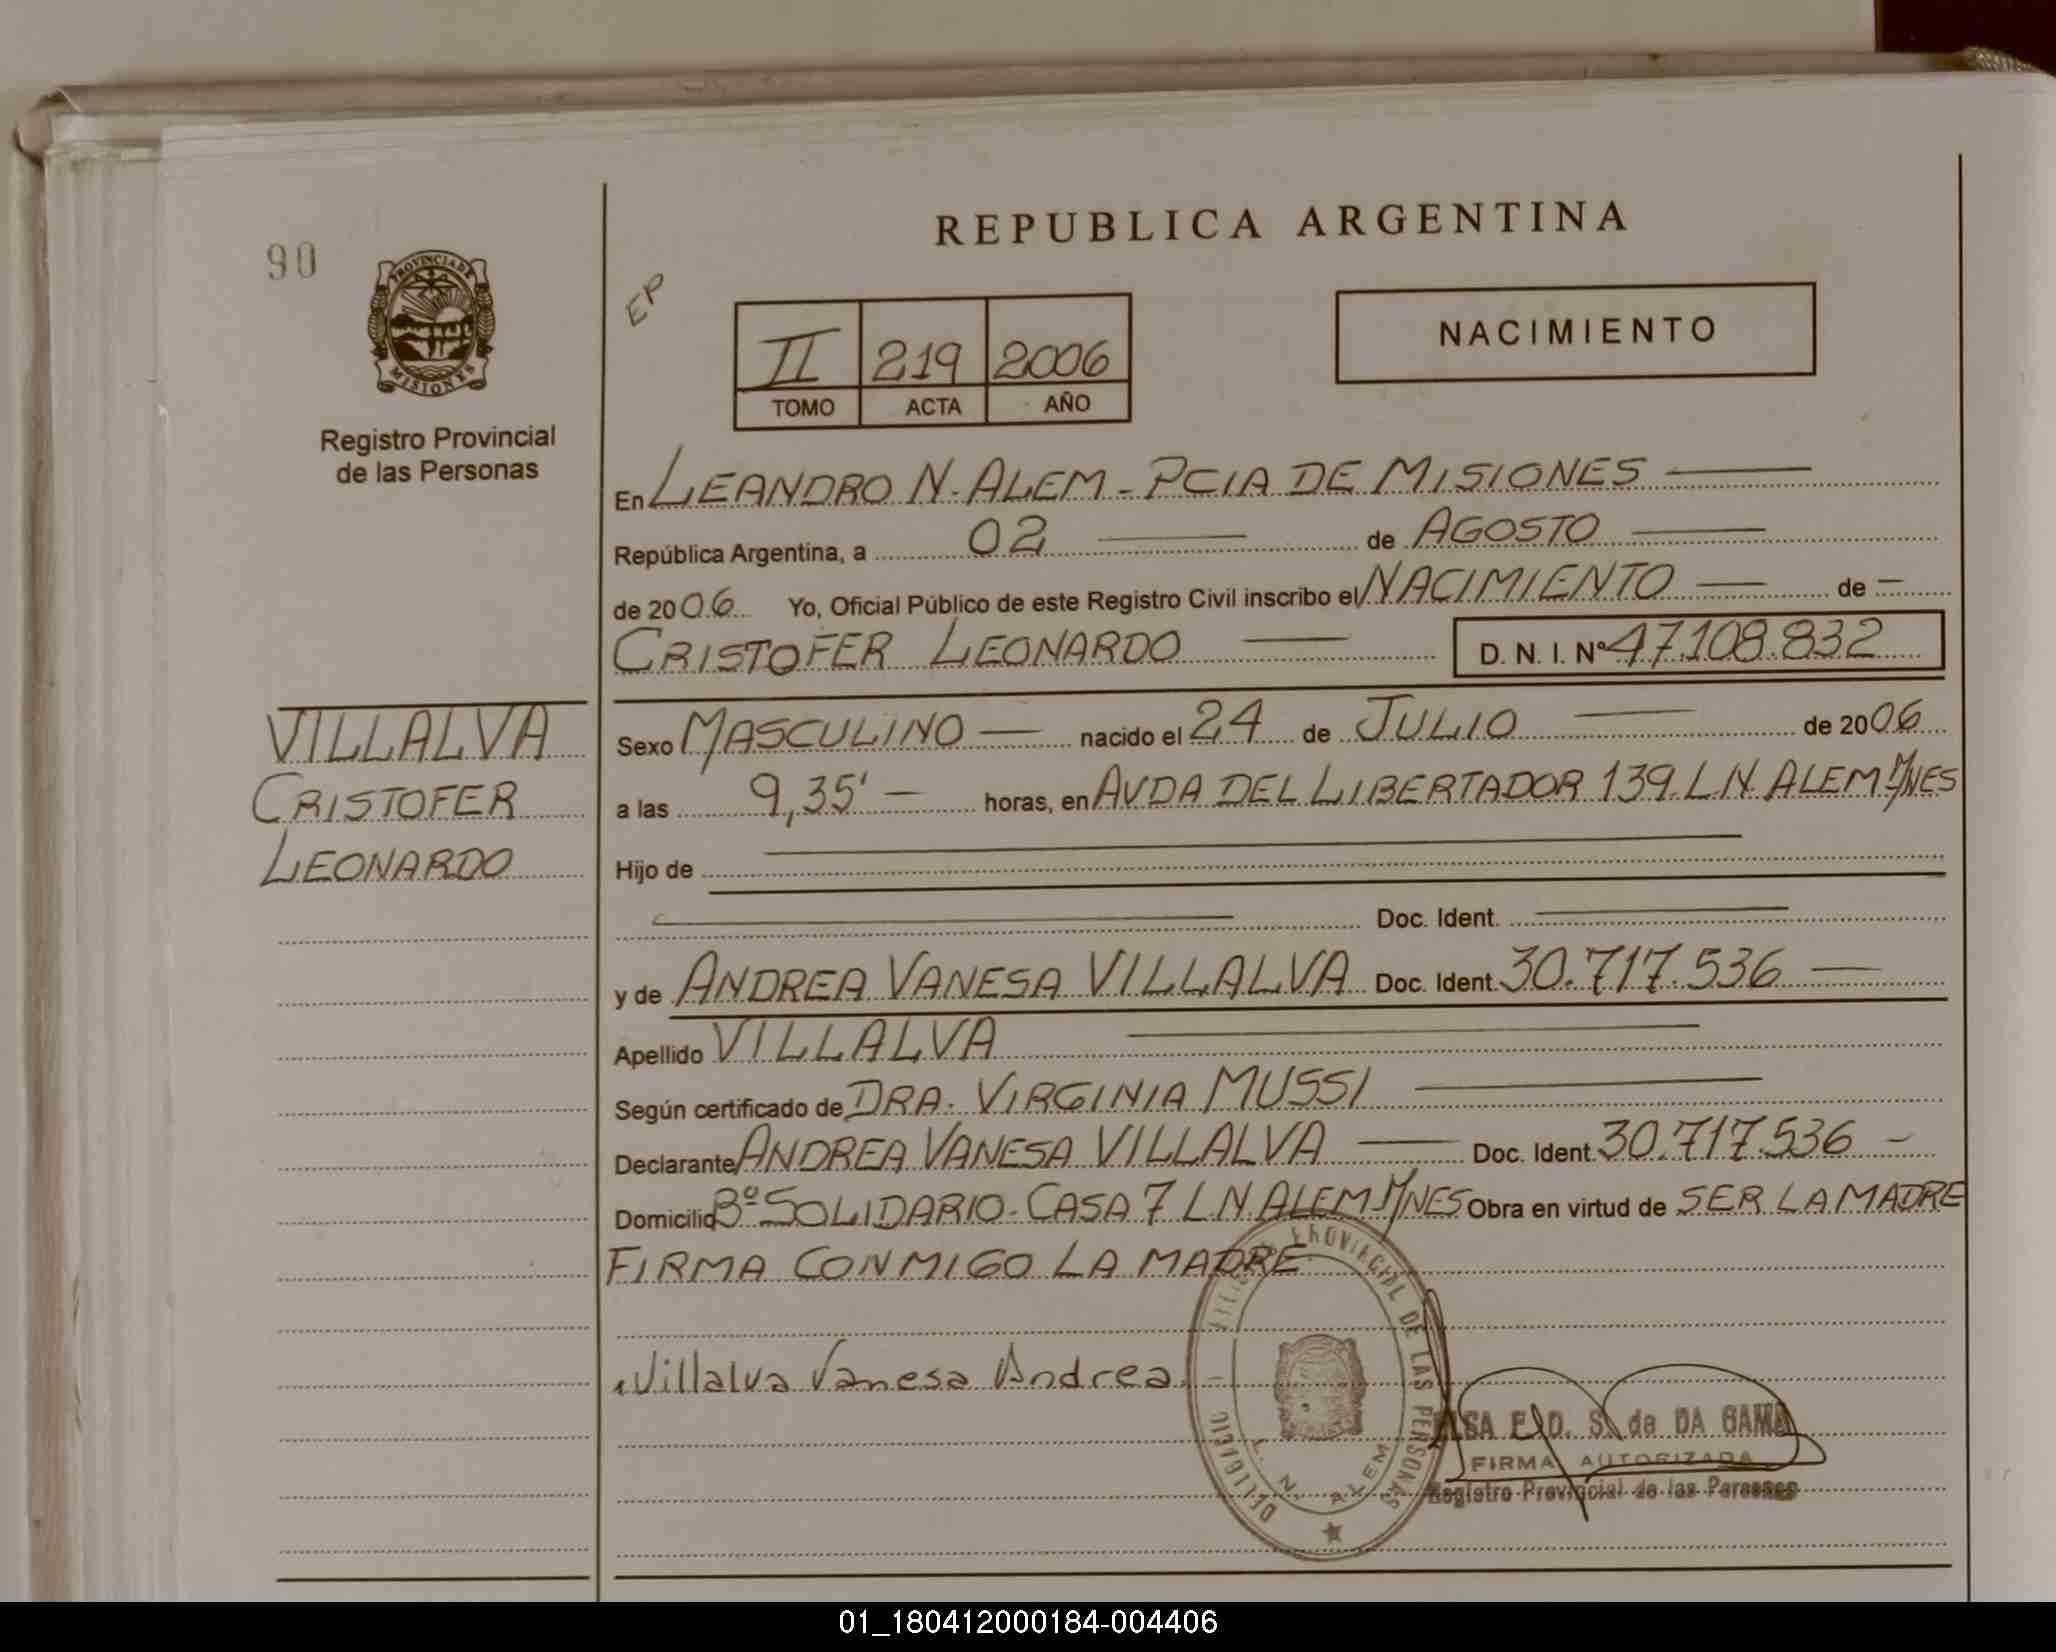 REPUBLICA ARGENTINA
90
PROVINCIA DE
MISIONES
EP
II 219 2006
TOMO ACTA AÑO
NACIMIENTO
Registro Provincial
de las Personas
En LEANDRO N. ALEM - PCIA DE MISIONES
República Argentina, a 02 de AGOSTO
de 2006 Yo, Oficial Público de este Registro Civil inscribo el NACIMIENTO — de —
CRISTOFER LEONARDO — D. N. I. Nº 47.108.832
VILLALVA
CRISTOFER
LEONARDO
Sexo MASCULINO — nacido el 24 de JULIO — de 2006
a las 9,35' — horas, en AVDA DEL LIBERTADOR 139. L.N. ALEM M/NES
Hijo de —
— Doc. Ident. —
y de ANDREA VANESA VILLALVA Doc. Ident. 30.717.536 —
Apellido VILLALVA —
Según certificado de DRA. VIRGINIA MUSSI —
Declarante ANDREA VANESA VILLALVA — Doc. Ident. 30.717.536 —
Domicilio Bº SOLIDARIO - CASA 7 L.N. ALEM M/NES Obra en virtud de SER LA MADRE
FIRMA CONMIGO LA MADRE
Villalva Vanesa Andrea
PROVINCIAL DE LAS PERSONAS
L. N. ALEM
E. D. S. de DA GAMA
FIRMA AUTORIZADA
Registro Provincial de las Personas
01_180412000184-004406